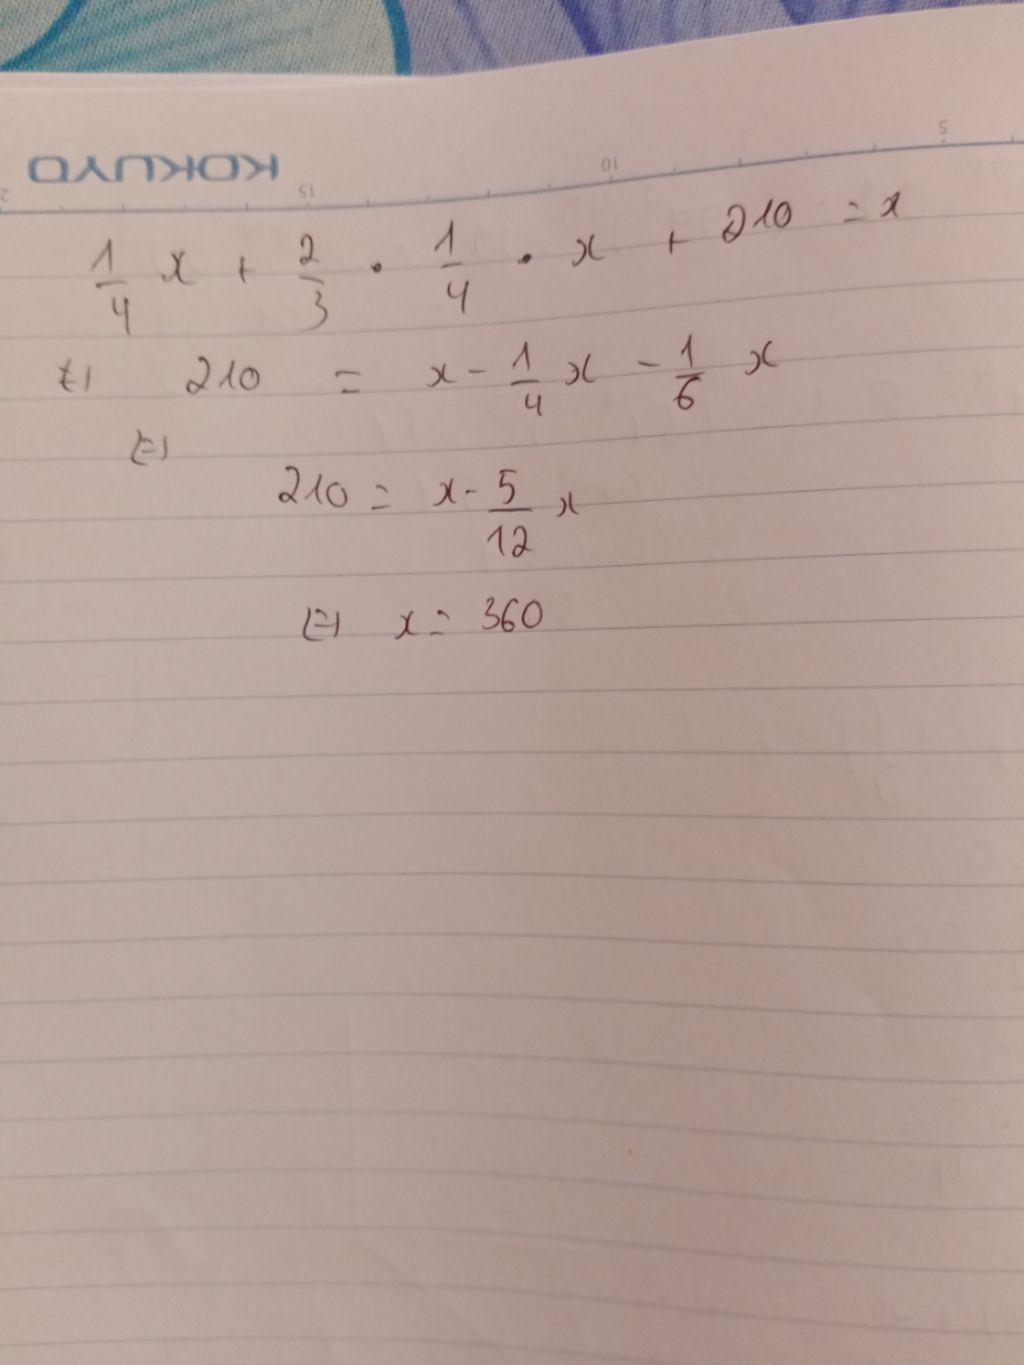 KOKUYO
5
10
15
2
1/4 x + 2/3 · 1/4 · x + 210 = x
(=) 210 = x - 1/4 x - 1/6 x
(=)
210 = x - 5/12 x
(=) x = 360